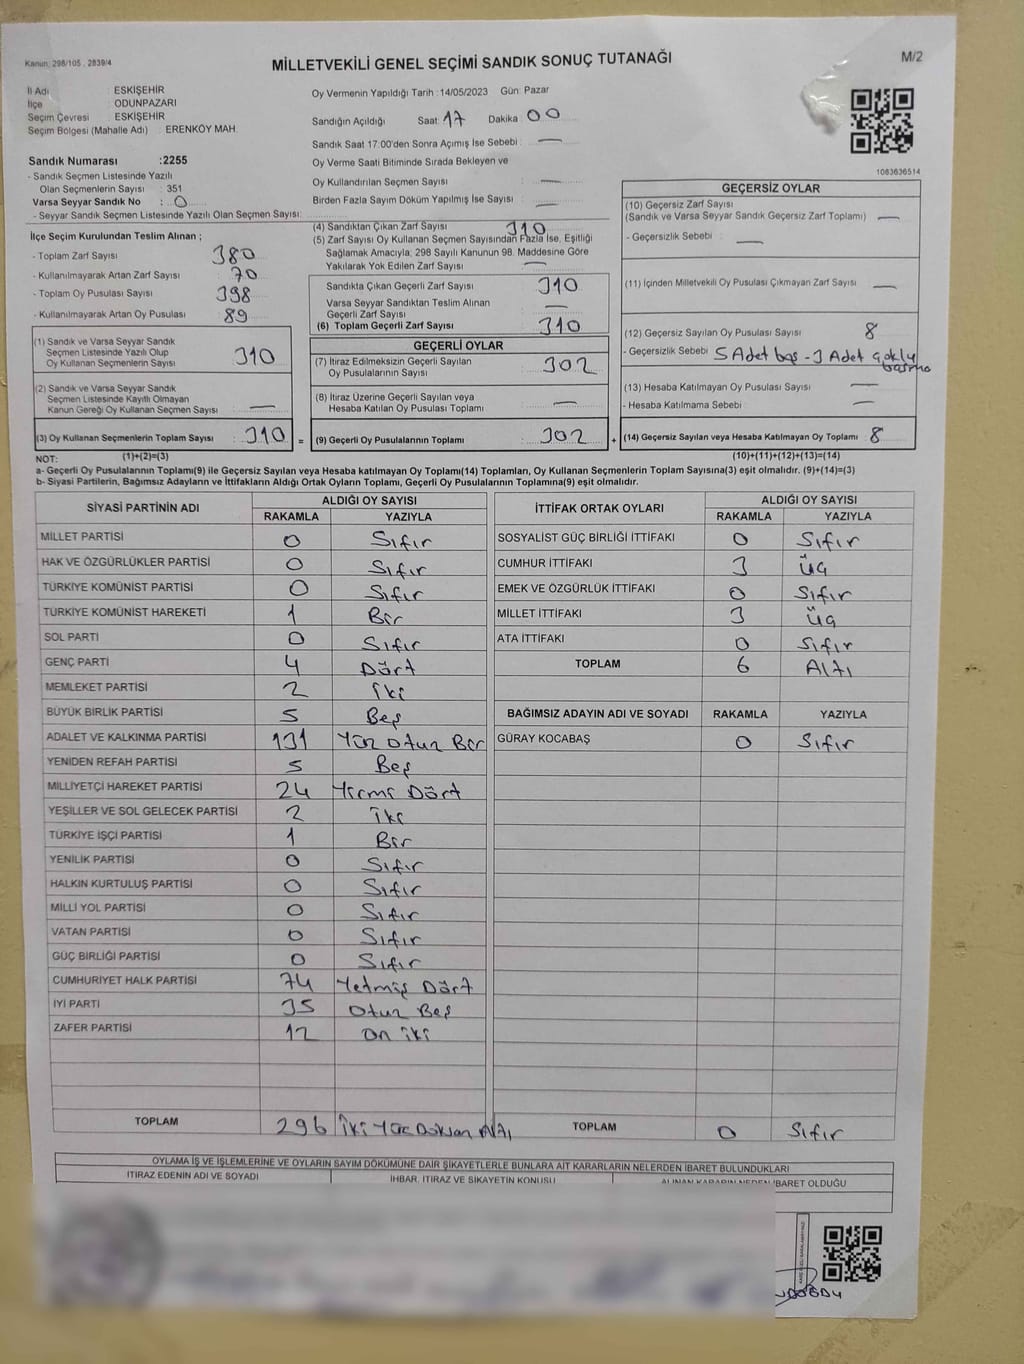 Kanun: 298/105 , 2839/4
MİLLETVEKİLİ GENEL SEÇİMİ SANDIK SONUÇ TUTANAĞI
M/2
İl Adı : ESKİŞEHİR
İlçe : ODUNPAZARI
Seçim Çevresi : ESKİŞEHİR
Seçim Bölgesi (Mahalle Adı) : ERENKÖY MAH.
Sandık Numarası :2255
- Sandık Seçmen Listesinde Yazılı
Olan Seçmenlerin Sayısı : 351
Varsa Seyyar Sandık No : 0
- Seyyar Sandık Seçmen Listesinde Yazılı Olan Seçmen Sayısı:
Oy Vermenin Yapıldığı Tarih :14/05/2023 Gün: Pazar
Sandığın Açıldığı Saat: 17 Dakika: 00
Sandık Saat 17.00'den Sonra Açımış İse Sebebi : —
Oy Verme Saati Bitiminde Sırada Bekleyen ve
Oy Kullandırılan Seçmen Sayısı : —
Birden Fazla Sayım Döküm Yapılmış İse Sayısı : —
1083636514
İlçe Seçim Kurulundan Teslim Alınan ;
- Toplam Zarf Sayısı : 380
- Kullanılmayarak Artan Zarf Sayısı : 70
- Toplam Oy Pusulası Sayısı : 398
- Kullanılmayarak Artan Oy Pusulası : 89
(1) Sandık ve Varsa Seyyar Sandık
Seçmen Listesinde Yazılı Olup
Oy Kullanan Seçmenlerin Sayısı : 310
(2) Sandık ve Varsa Seyyar Sandık
Seçmen Listesinde Kayıtlı Olmayan
Kanun Gereği Oy Kullanan Seçmen Sayısı : —
(3) Oy Kullanan Seçmenlerin Toplam Sayısı : 310 =
(4) Sandıktan Çıkan Zarf Sayısı : 310
(5) Zarf Sayısı Oy Kullanan Seçmen Sayısından Fazla İse, Eşitliği
Sağlamak Amacıyla, 298 Sayılı Kanunun 98. Maddesine Göre
Yakılarak Yok Edilen Zarf Sayısı : —
Sandıkta Çıkan Geçerli Zarf Sayısı : 310
Varsa Seyyar Sandıktan Teslim Alınan
Geçerli Zarf Sayısı : —
(6) Toplam Geçerli Zarf Sayısı : 310
GEÇERLİ OYLAR
(7) İtiraz Edilmeksizin Geçerli Sayılan
Oy Pusulalarının Sayısı : 302
(8) İtiraz Üzerine Geçerli Sayılan veya
Hesaba Katılan Oy Pusulası Toplamı : —
(9) Geçerli Oy Pusulalarının Toplamı : 302 +
GEÇERSİZ OYLAR
(10) Geçersiz Zarf Sayısı
(Sandık ve Varsa Seyyar Sandık Geçersiz Zarf Toplamı) : —
- Geçersizlik Sebebi : —
(11) İçinden Milletvekili Oy Pusulası Çıkmayan Zarf Sayısı : —
(12) Geçersiz Sayılan Oy Pusulası Sayısı : 8
- Geçersizlik Sebebi : 5 Adet boş - 3 Adet çoklu
basma
(13) Hesaba Katılmayan Oy Pusulası Sayısı : —
- Hesaba Katılmama Sebebi : —
(14) Geçersiz Sayılan veya Hesaba Katılmayan Oy Toplamı : 8
NOT: (1)+(2)=(3) (10)+(11)+(12)+(13)=(14)
a- Geçerli Oy Pusulalarının Toplamı(9) ile Geçersiz Sayılan veya Hesaba katılmayan Oy Toplamı(14) Toplamları, Oy Kullanan Seçmenlerin Toplam Sayısına(3) eşit olmalıdır. (9)+(14)=(3)
b- Siyasi Partilerin, Bağımsız Adayların ve İttifakların Aldığı Ortak Oyların Toplamı, Geçerli Oy Pusulalarının Toplamına(9) eşit olmalıdır.
SİYASİ PARTİNİN ADI ALDIĞI OY SAYISI
RAKAMLA YAZIYLA
MİLLET PARTİSİ 0 Sıfır
HAK VE ÖZGÜRLÜKLER PARTİSİ 0 Sıfır
TÜRKİYE KOMÜNİST PARTİSİ 0 Sıfır
TÜRKİYE KOMÜNİST HAREKETİ 1 Bir
SOL PARTİ 0 Sıfır
GENÇ PARTİ 4 Dört
MEMLEKET PARTİSİ 2 İki
BÜYÜK BİRLİK PARTİSİ 5 Beş
ADALET VE KALKINMA PARTİSİ 131 Yüz Otuz Bir
YENİDEN REFAH PARTİSİ 5 Beş
MİLLİYETÇİ HAREKET PARTİSİ 24 Yirmi Dört
YEŞİLLER VE SOL GELECEK PARTİSİ 2 İki
TÜRKİYE İŞÇİ PARTİSİ 1 Bir
YENİLİK PARTİSİ 0 Sıfır
HALKIN KURTULUŞ PARTİSİ 0 Sıfır
MİLLİ YOL PARTİSİ 0 Sıfır
VATAN PARTİSİ 0 Sıfır
GÜÇ BİRLİĞİ PARTİSİ 0 Sıfır
CUMHURİYET HALK PARTİSİ 74 Yetmiş Dört
İYİ PARTİ 35 Otuz Beş
ZAFER PARTİSİ 12 On iki
TOPLAM 296 İki Yüz Doksan Altı
İTTİFAK ORTAK OYLARI ALDIĞI OY SAYISI
RAKAMLA YAZIYLA
SOSYALİST GÜÇ BİRLİĞİ İTTİFAKI 0 Sıfır
CUMHUR İTTİFAKI 3 Üç
EMEK VE ÖZGÜRLÜK İTTİFAKI 0 Sıfır
MİLLET İTTİFAKI 3 Üç
ATA İTTİFAKI 0 Sıfır
TOPLAM 6 Altı
BAĞIMSIZ ADAYIN ADI VE SOYADI RAKAMLA YAZIYLA
GÜRAY KOCABAŞ 0 Sıfır
TOPLAM 0 Sıfır
OYLAMA İŞ VE İŞLEMLERİNE VE OYLARIN SAYIM DÖKÜMÜNE DAİR ŞİKAYETLERLE BUNLARA AİT KARARLARIN NELERDEN İBARET BULUNDUKLARI
İTİRAZ EDENİN ADI VE SOYADI İHBAR, İTİRAZ VE ŞİKAYETİN KONUSU ALINAN KARARIN NEDEN İBARET OLDUĞU